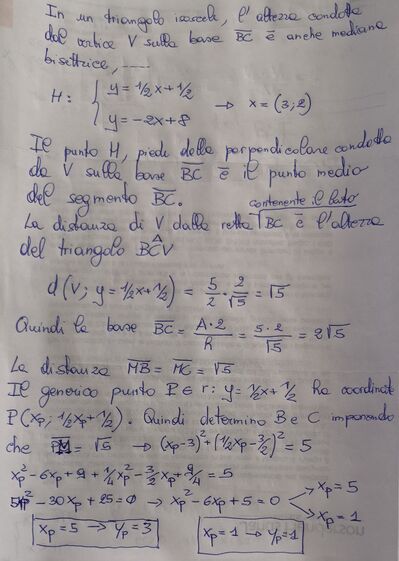 In un triangolo isoscele, l'altezza condotta
dal vertice V sulla base BC è anche mediana
bisettrice, ----
H: { y = 1/2x + 1/2
y = -2x + 8 → x = (3; 2)
Il punto H, piede della perpendicolare condotta
da V sulla base BC è il punto medio
del segmento BC.
contenente il lato
La distanza di V dalla retta BC è l'altezza
del triangolo BCV
d(V; y = 1/2x + 1/2) = 5/2 · 2/√5 = √5
Quindi la base BC = A·2/h = 5·2/√5 = 2√5
La distanza MB = MC = √5
Il generico punto P ∈ r: y = 1/2x + 1/2 ha coordinate
P(xp; 1/2xp + 1/2). Quindi determino B e C imponendo
che PM = √5 → (xp - 3)² + (1/2xp - 3/2)² = 5
xp² - 6xp + 9 + 1/4xp² - 3/2xp + 9/4 = 5
5xp² - 30xp + 25 = 0 → xp² - 6xp + 5 = 0 → xp = 5
→ xp = 1
xp = 5 → yp = 3 xp = 1 → yp = 1